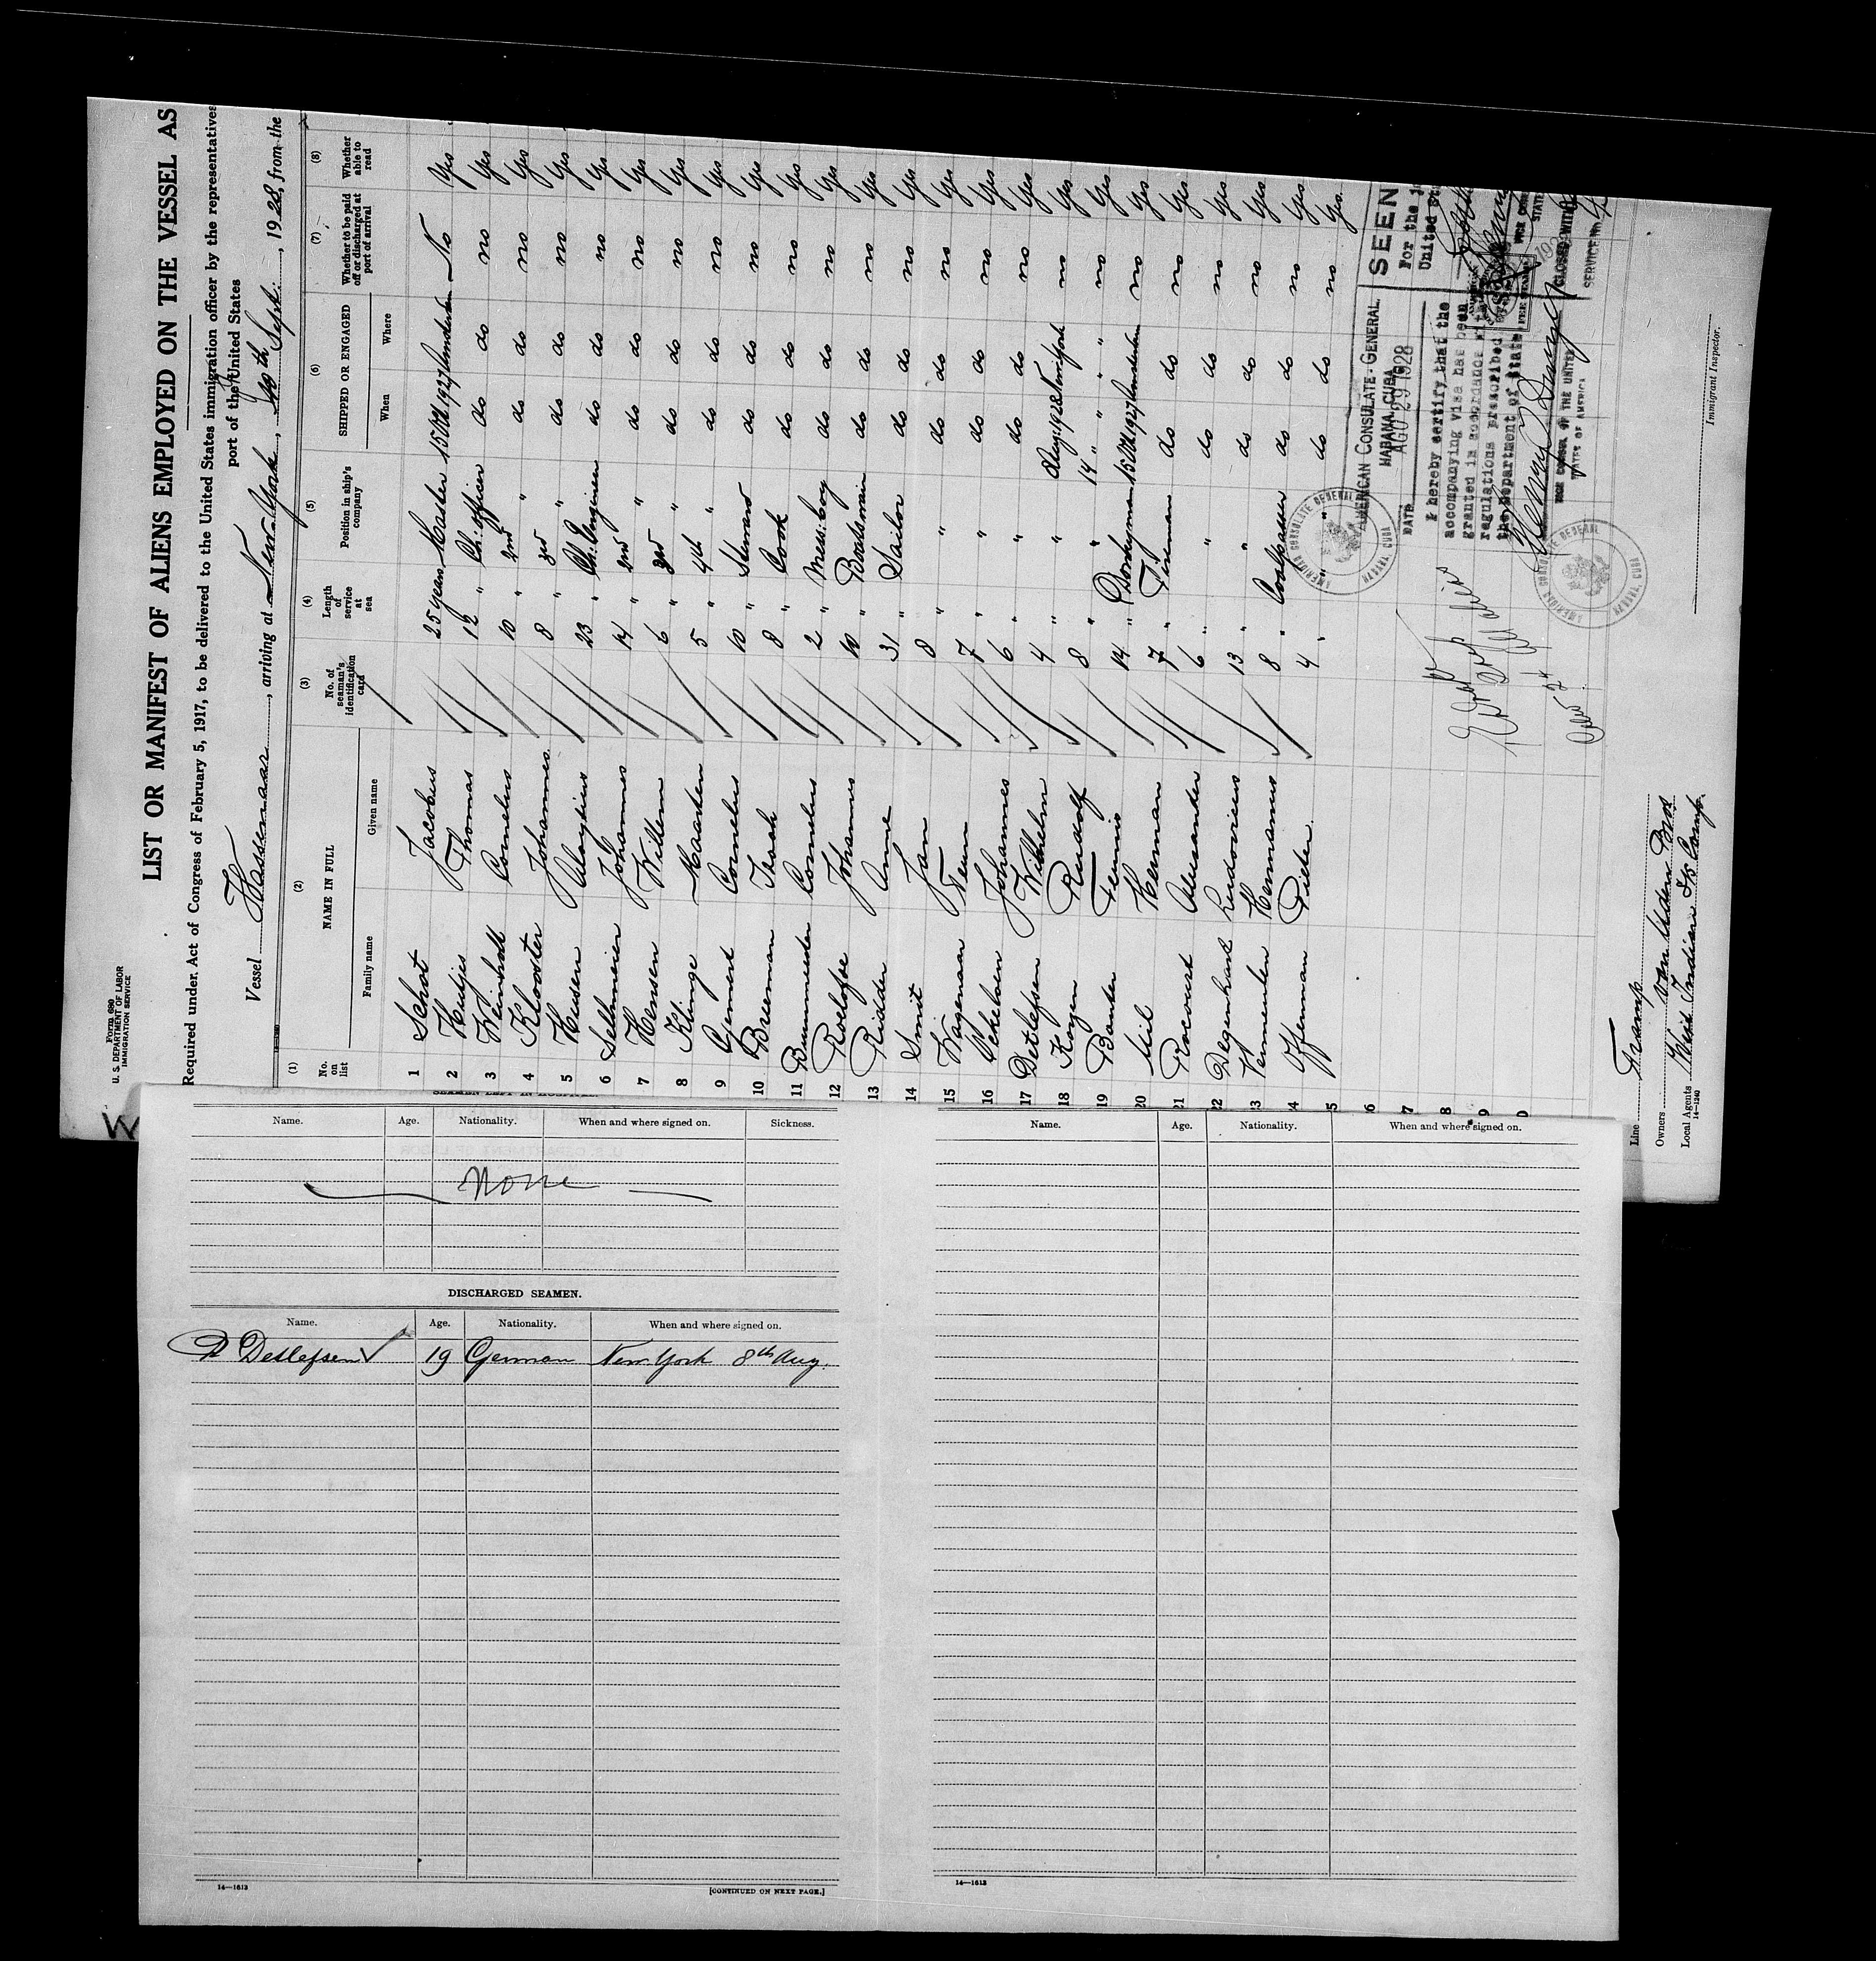 Form 680
U. S. DEPARTMENT OF LABOR
IMMIGRATION SERVICE
LIST OR MANIFEST OF ALIENS EMPLOYED ON THE VESSEL AS
Required under Act of Congress of February 5, 1917, to be delivered to the United States immigration officer by the representatives
port of the United States
Vessel, arriving at New York, Sept., 1928, from the
(1) (2) (3) (4) (5) (6) (7) (8)
No. on list NAME IN FULL No. of seaman's identification card Length of service at sea Position in ship's company SHIPPED OR ENGAGED Whether to be paid off or discharged at port of arrival Whether able to read
Family name Given name When Where
1 Schot Jacobus 25 years Master 15 Oct. 1927 No Yes
2 Heutjes Thomas 12 " Ch: officer do do no Yes
3 Cornelius 10 " 2nd " do do no Yes
4 Klooster Johannes 8 " 3rd " do do no Yes
5 Heusen Aloysius 23 " Ch: Engineer do do no Yes
6 Sellmeier Johannes 14 " 2nd " do do no Yes
7 Hensen Willem 6 " 3rd " do do no Yes
8 Klinge Maarten 5 " 4th " do do no Yes
9 Gemert Cornelus 10 " Steward do do no Yes
10 Breeman Izaak 8 " Cook do do no Yes
11 Cornelus 2 " Mess: boy do do no Yes
12 Roelofse Johannes 10 " Boatswain do do no Yes
13 Ridder Anne 31 " Sailor do do no Yes
14 Smit Jan 8 " " do do no Yes
15 Wagenaar Teun 7 " " do do no Yes
16 Johannes 6 " " do do no Yes
17 Detlefsen Wilhelm 4 " " Aug: 1928 New York no Yes
18 Koyen Rudolf 8 " " 14 " " " no Yes
19 Banter Teunis 14 " Donkeyman 15 Oct. 1927 no Yes
20 Mil Herman 7 " Fireman do do no Yes
21 Rocourt Alexander 6 " " do do no Yes
22 Degenhart Ludovicus 13 " " do do no Yes
23 Vermeulen Hermanus 8 " Coalpasser do do no Yes
24 Offerman Pieter 4 " " do do no Yes
AMERICAN CONSULATE-GENERAL
HABANA, CUBA
DATE AGO 29 1928
SEEN
For the
United St
I hereby certify that the
accompanying visa has been
granted in accordance with
regulations prescribed by
the Department of State
VICE CONSUL OF THE UNITED
STATES OF AMERICA
FEE STAMP
SERVICE No.
AMERICAN CONSULATE GENERAL
HABANA, CUBA
AMERICAN CONSULATE GENERAL
HABANA, CUBA
Line Tramp
Owners van Uden Bros
Local Agents West Indian SS Comp.
14—1240
Immigrant Inspector.
Name. Age. Nationality. When and where signed on. Sickness.
None
DISCHARGED SEAMEN.
Name. Age. Nationality. When and where signed on.
Detlefsen 19 German New York 8th Aug.
14—1613
[CONTINUED ON NEXT PAGE.]
Name. Age. Nationality. When and where signed on.
14—1613